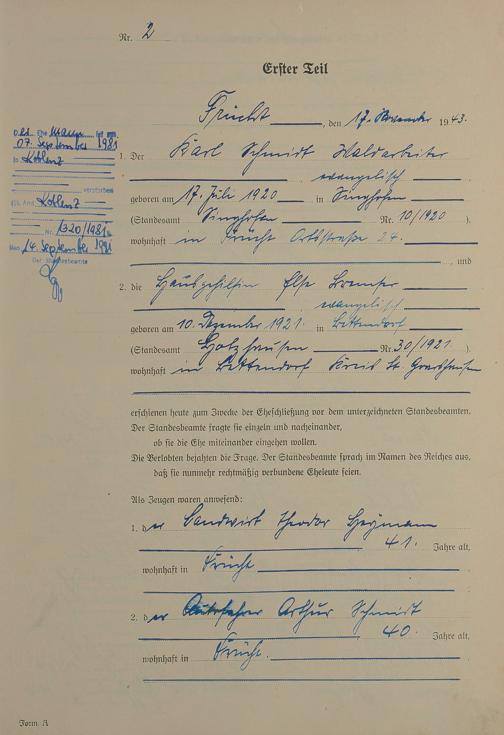 Nr. 2
Erster Teil
Frücht, den 17. November 1943.
1. Der Karl Schmidt Waldarbeiter
evangelisch
geboren am 17. Juli 1920 in Singhofen
(Standesamt Singhofen Nr. 10/1920 ).
wohnhaft in Frücht Ortsstraße 24.
, und
2. die Hausgehilfin Else
evangelisch
geboren am 10. Dezember 1921. in Bettendorf
(Standesamt Holzhausen Nr. 30/1921. ).
wohnhaft in Bettendorf Kreis St. Goarshausen
erschienen heute zum Zwecke der Eheschließung vor dem unterzeichneten Standesbeamten.
Der Standesbeamte fragte sie einzeln und nacheinander,
ob sie die Ehe miteinander eingehen wollen.
Die Verlobten bejahten die Frage. Der Standesbeamte sprach im Namen des Reiches aus,
daß sie nunmehr rechtmäßig verbundene Eheleute seien.
Als Zeugen waren anwesend:
1. der Landwirt Theodor Heymann
41. Jahre alt,
wohnhaft in Frücht
2. der Arthur Schmidt
40 Jahre alt,
wohnhaft in Frücht.
Form. A
Ehemann ist am
07. September 1981
in Koblenz
verstorben
Koblenz
Nr. 1320/1981
14. September 1981
Der Standesbeamte